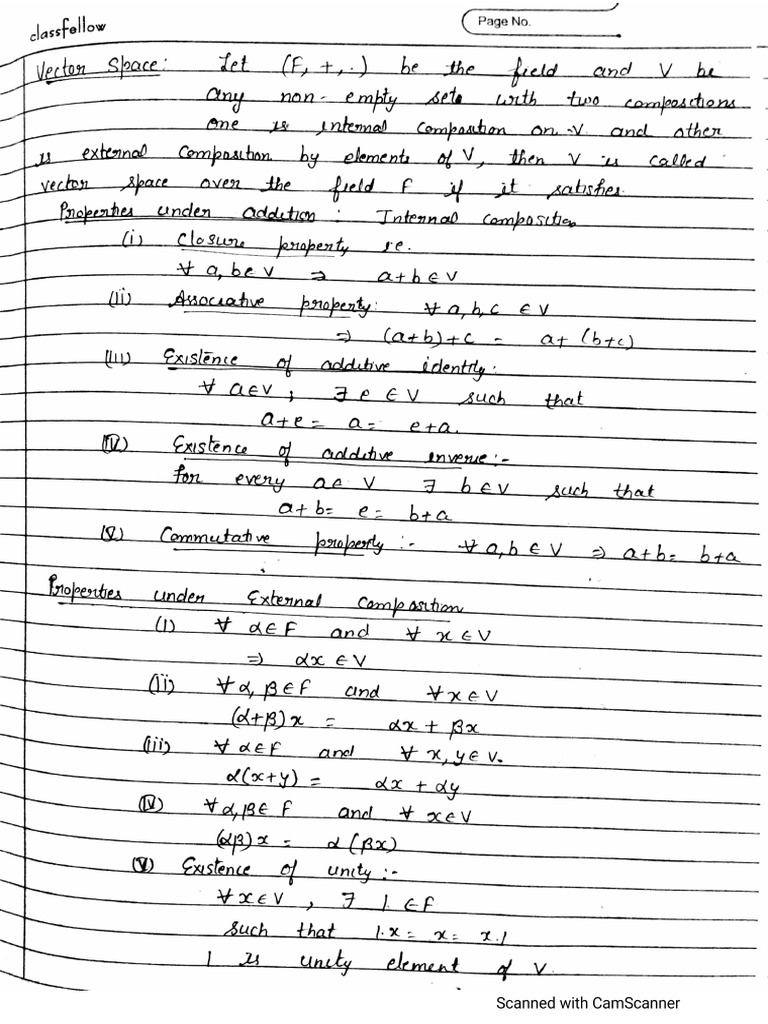 classfellow
Page No.
Vector Space: Let (F, +, ·) be the field and V be
any non-empty sets with two compositions
one is internal composition on V and other
is external composition by elements of V, then V is called
vector space over the field F if it satisfies.
Properties under addition: Internal composition
(i) Closure property i.e.
∀ a, b ∈ V ⇒ a+b ∈ V
(ii) Associative property: ∀ a, b, c ∈ V
⇒ (a+b)+c = a+ (b+c)
(iii) Existence of additive identity:
∀ a∈V ; ∃ e ∈ V such that
a+e = a = e+a.
(IV) Existence of additive inverse:-
for every a∈ V ∃ b∈V such that
a+b= e = b+a
(V) Commutative property:- ∀ a,b ∈ V ⇒ a+b= b+a
Properties under External composition
(i) ∀ α∈F and ∀ x∈V
⇒ αx ∈ V
(ii) ∀ α, β∈F and ∀x∈V
(α+β)x = αx + βx
(iii) ∀ α∈F and ∀ x,y∈V.
α(x+y) = αx + αy
(IV) ∀ α,β∈ F and ∀ x∈V
(αβ)x = α(βx)
(V) Existence of unity:-
∀x∈V , ∃ 1 ∈F
such that 1.x = x = x.1
1 is unity element of V.
Scanned with CamScanner